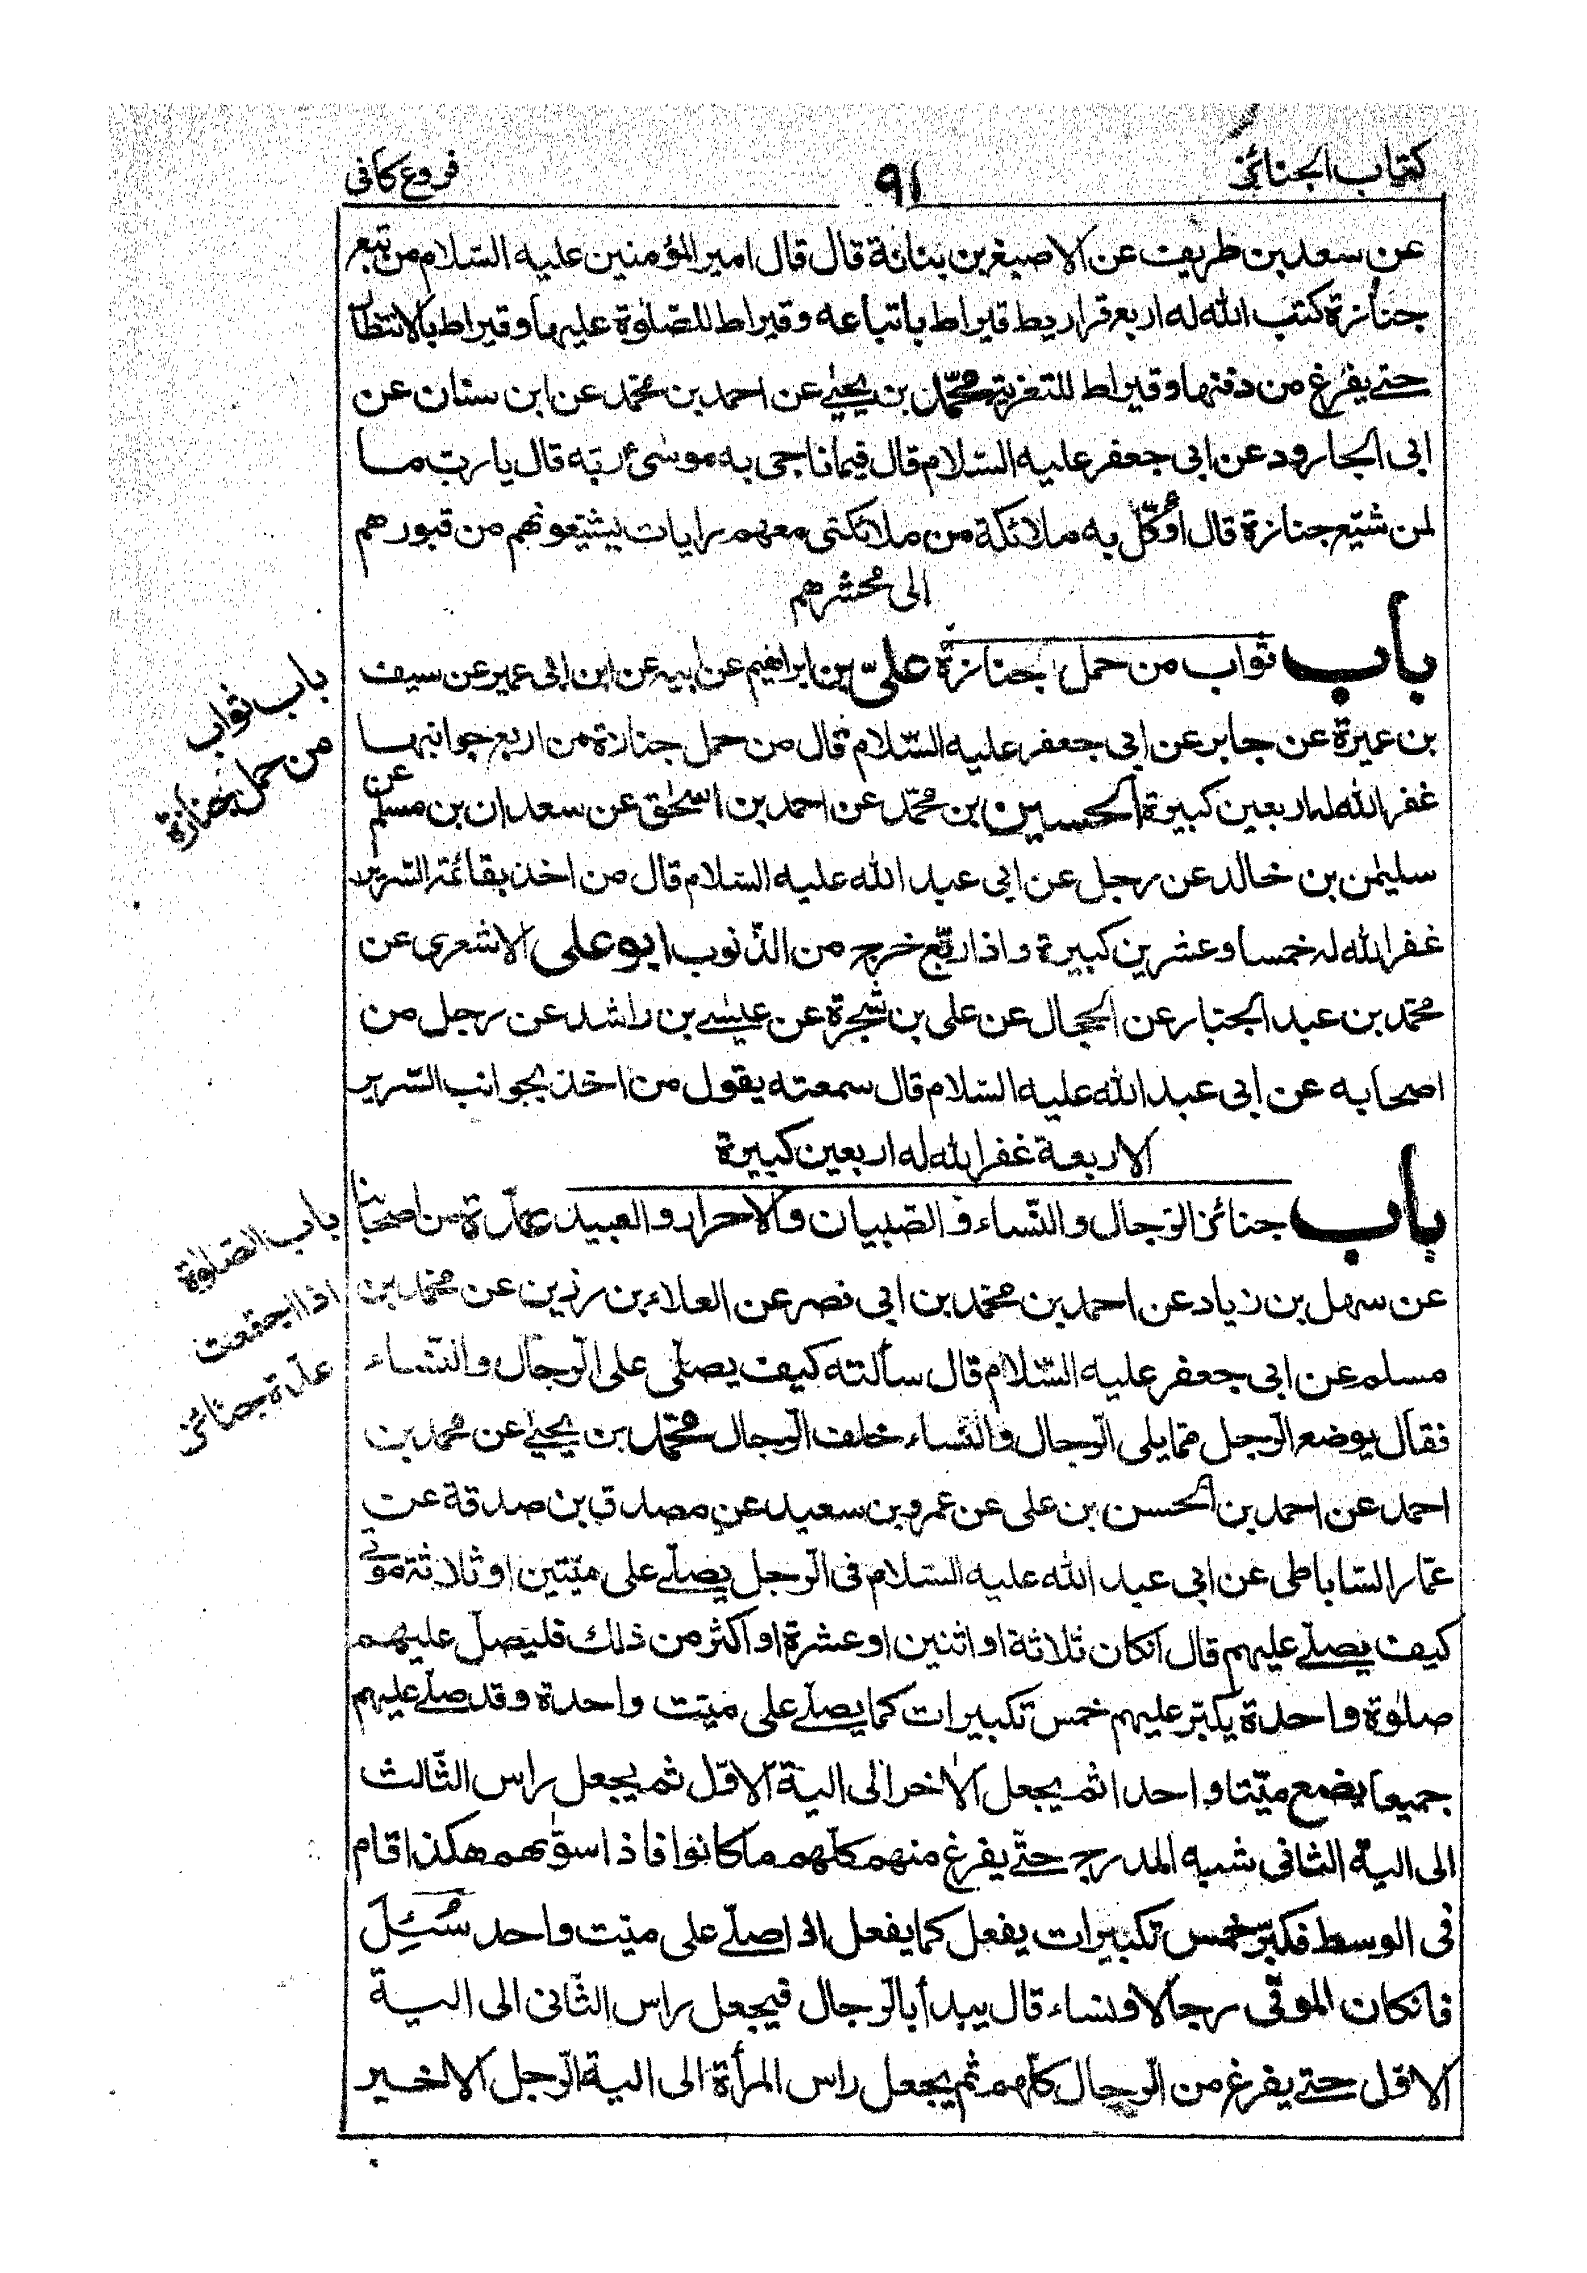 كتاب الجنائز
٩١
فروع كافى
عن سعد بن طريف عن الاصبغ بن بنانة قال قال امير المؤمنين عليه السّلام من تبع
جنازة كتب اللّه له اربع قراريط قيراط باتباعه وقيراط للصّلوة عليها وقيراط بالانتظار
حتى يفرغ من دفنها وقيراط للتعزية محمّد بن يحيى عن احمد بن محمّد عن ابن سنان عن
ابى الجارود عن ابى جعفر عليه السّلام قال فيما ناجى به موسى ربّه قال يا ربّ ما
لمن شيّع جنازة قال أوكّل به ملائكة من ملائكتى معهم رايات يشيّعونهم من قبورهم
الى محشرهم
باب ثواب من حمل جنازة علىّ بن ابراهيم عن ابيه عن ابن ابى عمير عن سيف
بن عميرة عن جابر عن ابى جعفر عليه السّلام قال من حمل جنازة من اربع جوانبها
غفر اللّه له اربعين كبيرة الحسين بن محمّد عن احمد بن اسحٰق عن سعدان بن مسلم عن
سليمٰن بن خالد عن رجل عن ابى عبد اللّه عليه السّلام قال من اخذ بقائمة السّرير
غفر اللّه له خمسا وعشرين كبيرة واذا ربّع خرج من الذّنوب ابو على الاشعرى عن
محمّد بن عبد الجبّار عن الحجّال عن على بن شجرة عن عيسى بن راشد عن رجل من
اصحابه عن ابى عبد اللّه عليه السّلام قال سمعته يقول من اخذ بجوانب السّرير
الاربعة غفر اللّه له اربعين كبيرة
باب جنائز الرّجال والنّساء والصّبيان والاحرار والعبيد عدّة من اصحابنا
عن سهل بن زياد عن احمد بن محمّد بن ابى نصر عن العلاء بن رزين عن محمّد بن
مسلم عن ابى جعفر عليه السّلام قال سألته كيف يصلّى على الرّجال والنّساء
فقال يوضع الرّجل ممّا يلى الرّجال والنّساء خلف الرّجال محمّد بن يحيى عن محمد بن
احمد عن احمد بن الحسن بن على عن عمرو بن سعيد عن مصدق بن صدقة عن
عمّار السّاباطى عن ابى عبد اللّه عليه السّلام فى الرّجل يصلّى على ميّتين او ثلاثة موتى
كيف يصلّى عليهم قال انكان ثلاثة او اثنين او عشرة او اكثر من ذلك فليصلّ عليهم
صلٰوة واحدة يكبّر عليهم خمس تكبيرات كما يصلّى على ميّت واحدة وقد صلّى عليهم
جميعا يضع ميّتا واحدا ثم يجعل الاٰخر الى الية الاوّل ثم يجعل راس الثّالث
الى الية الثانى شبه المدرج حتّى يفرغ منهم كلّهم ما كانوا فاذا سوّٰهم هكذا قام
فى الوسط فكبّر خمس تكبيرات يفعل كما يفعل اذا صلّى على ميّت واحد سُئِلَ
فانكان الموتى رجالا ونساء قال يبدأ بالرّجال فيجعل راس الثّانى الى الية
الاوّل حتى يفرغ من الرّجال كلّهم ثم يجعل راس المرأة الى الية الرّجل الاخير
باب ثواب
من حمل جنازة
باب الصّلوٰة
اذا اجتمعت
عدّة جنائز